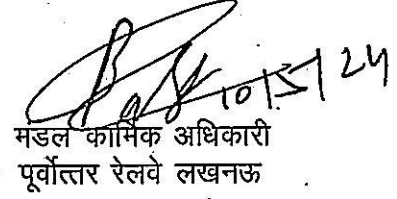 10/5/24
मंडल कार्मिक अधिकारी
पूर्वोत्तर रेलवे लखनऊ